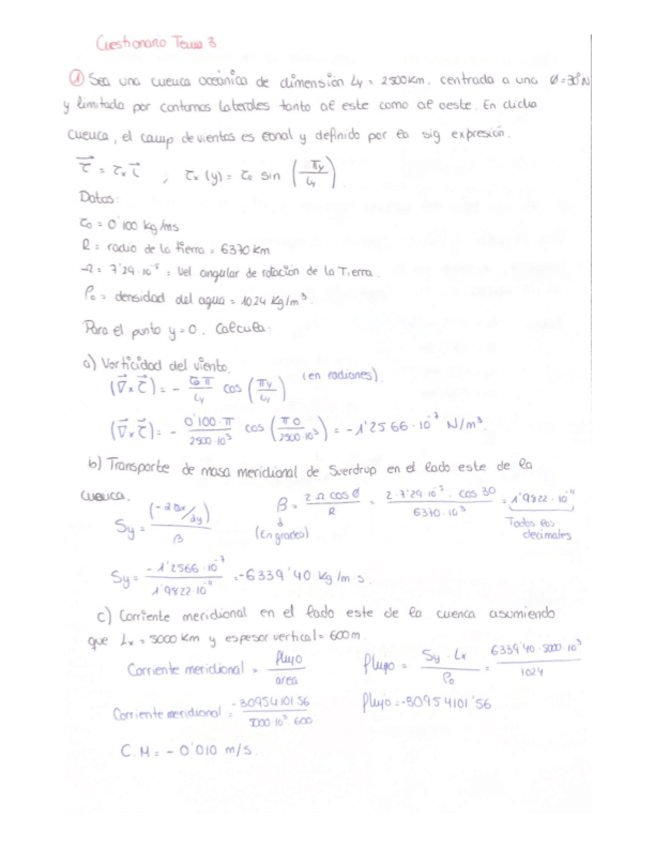 Cuestionario Tema 3
① Sea una cuenca oceánica de dimensión Ly = 2500km, centrada a una Ø=30°N
y limitada por contornos laterales tanto al este como al oeste. En dicha
cuenca, el campo de vientos es zonal y definido por la sig expresión.
τ⃗ = τx i⃗ , τx (y) = τ0 sin (πy/Ly)
Datos:
τ0 = 0'100 kg/ms
R = radio de la tierra = 6370 km
Ω = 7'29·10⁻⁵ = Vel angular de rotación de la Tierra.
ρ0 = densidad del agua = 1024 kg/m³.
Para el punto y=0. Calcula:
a) Vorticidad del viento.
(∇⃗ x τ⃗) = - τ0 π/Ly cos (πy/Ly) (en radianes).
(∇⃗ x τ⃗) = - 0'100·π/2500·10³ cos (π0/2500·10³) = -1'2566·10⁻⁷ N/m³.
b) Transporte de masa meridional de Sverdrup en el lado este de la
cuenca.
Sy = (-∂τx/∂y)/β β = 2 Ω cos Ø/R = 2·7'29·10⁻⁵·cos 30/6370·10³ = 1'9822·10⁻¹¹
(En grados) Todos los decimales
Sy = -1'2566·10⁻⁷/1'9822·10⁻¹¹ = -6339'40 kg/m s.
c) Corriente meridional en el lado este de la cuenca asumiendo
que Lx = 5000 km y espesor vertical = 600m.
Corriente meridional = flujo/area flujo = Sy · Lx/ρ0 = 6339'40·5000·10³/1024
Corriente meridional = -30954101'56/·10³·600 flujo = -30954101'56
C.M = - 0'010 m/s.